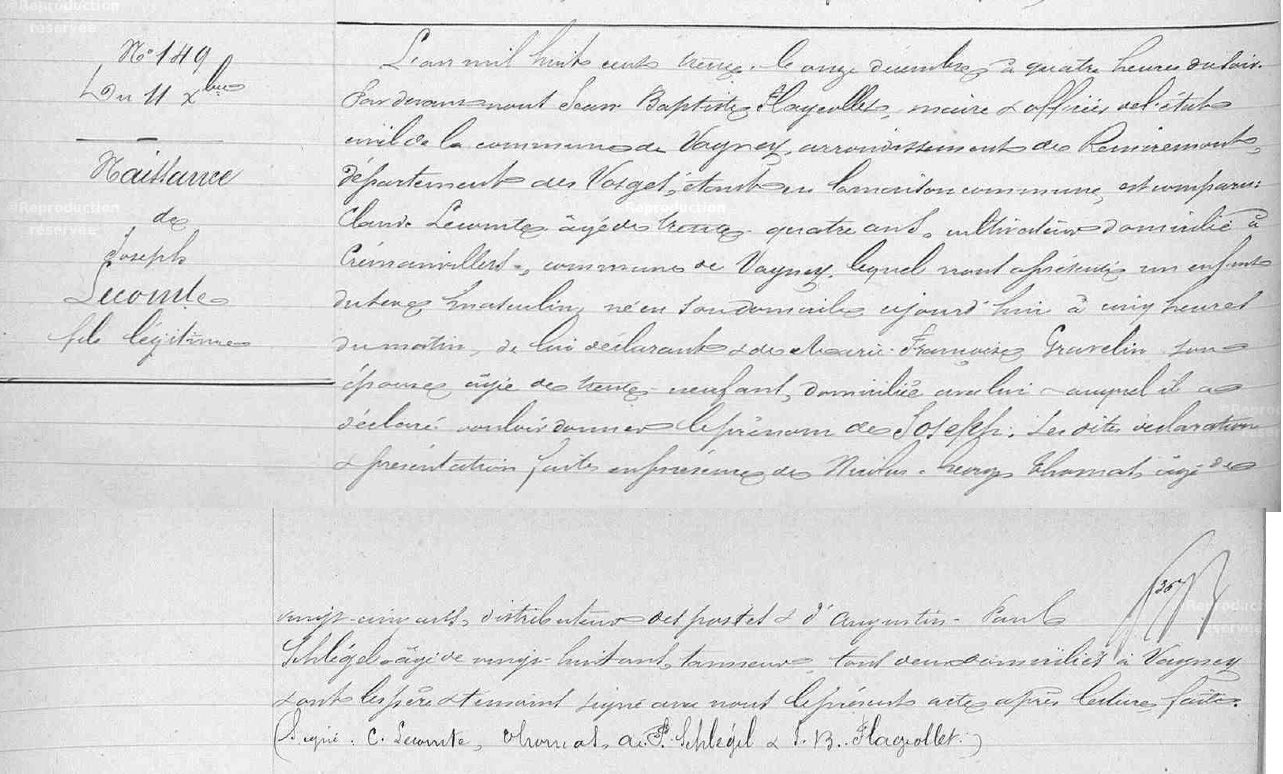 N° 149
Du 11 Xbre
Naissance
de
Joseph
Lecomte
fils légitime
L'an mil huit cent trente, le onze décembre, à quatre heures du soir.
Par devant nous Jean Baptiste Flageollet, maire & officier de l'état
civil de la commune de Vagney, arrondissement de Remiremont,
département des Vosges, étant en la maison commune, est comparu
Claude Lecomte âgé de trente quatre ans, cultivateur domicilié à
Crémanvillers, commune de Vagney, lequel nous a présenté un enfant
du sexe masculin, né en son domicile aujourd'hui à cinq heures
du matin, de lui déclarant & de Marie Françoise Gravelin son
épouse âgée de trente neuf ans, domiciliée avec lui auquel il a
déclaré vouloir donner le prénom de Joseph. Les dites déclaration
& présentation faites en présence de Nicolas Georges Thomas, âgé de
vingt-cinq ans, distributeur des postes & d'Augustin Paul
Schlégel âgé de vingt-huit ans, tanneur, tous deux domiciliés à Vagney
& ont les père & témoins signé avec nous le présent acte après lecture faite.
(Signé : C. Lecomte, Thomas, A. P. Schlégel & J. B. Flageollet.)
Reproduction
réservée